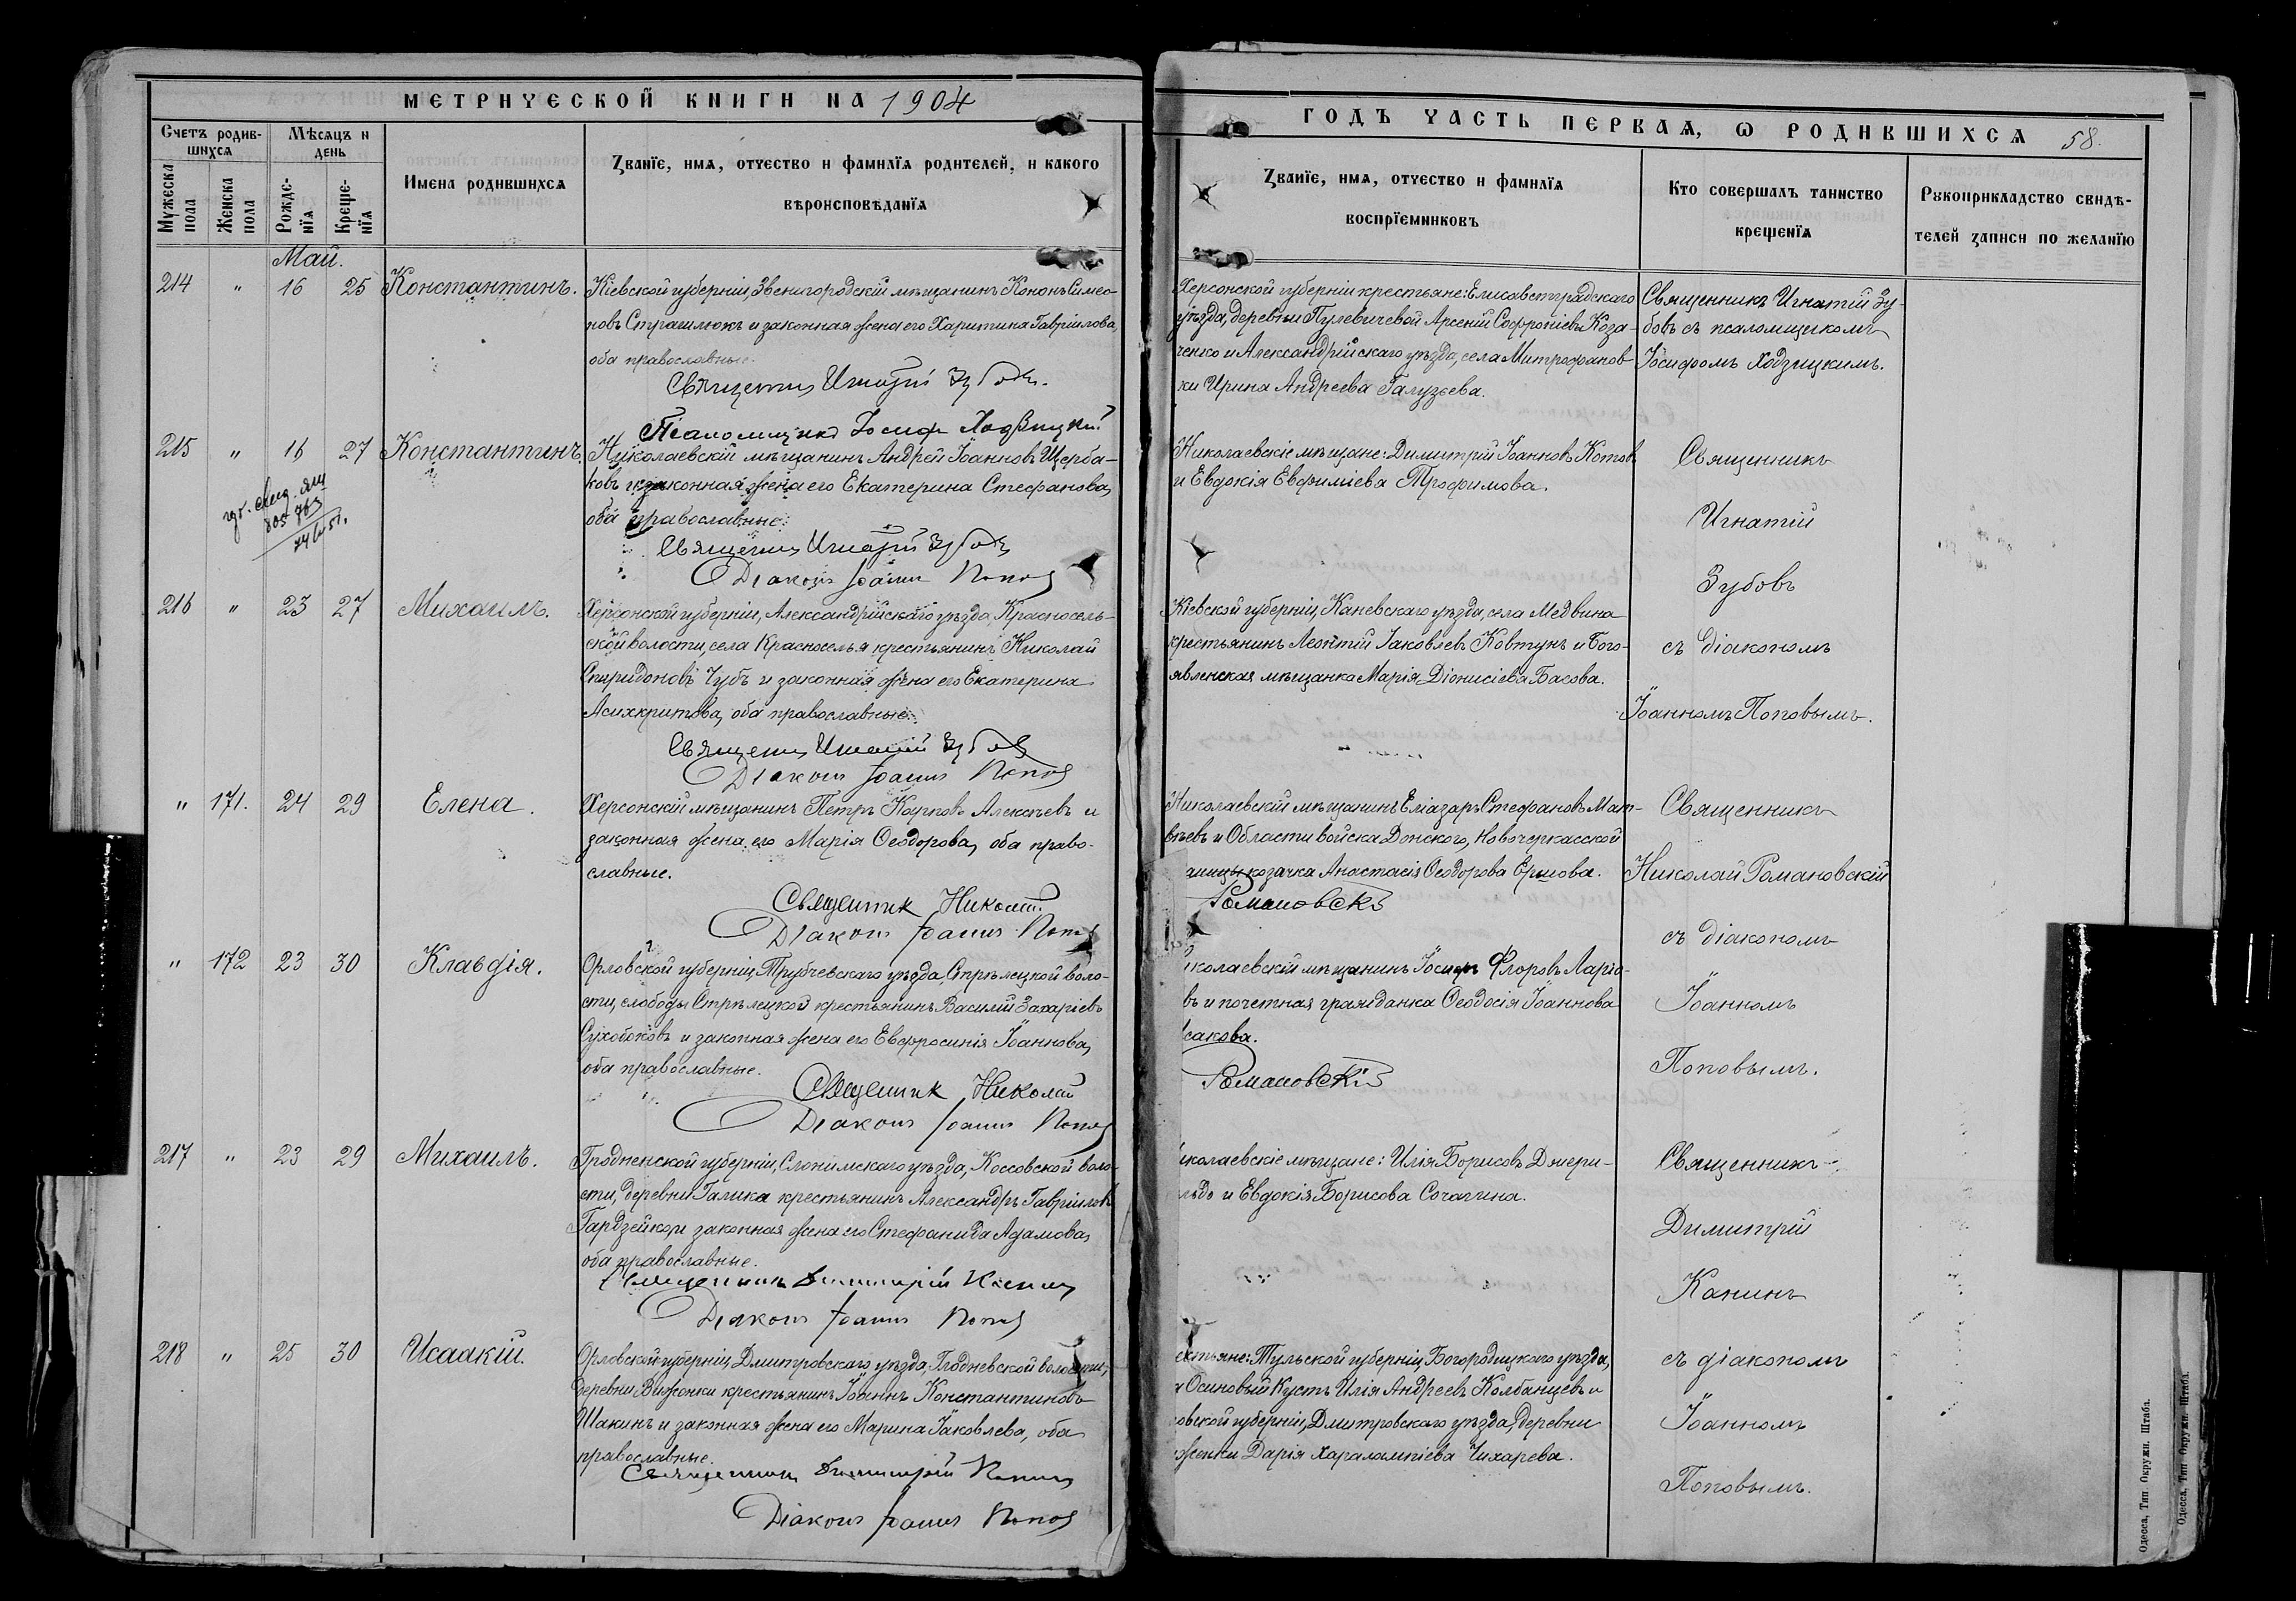 МЕТРИЧЕСКОЙ КНИГИ НА 1904
Счетъ родив-
шихся
Мѣсяцъ и
день
Мужеска
пола
Женска
пола
Рожде-
нїя
Креще-
нїя
Имена родившихся
Званїе, имя, отчество и фамилїя родителей, и какого
вѣроисповѣданїя
Май.
214 " 16 25 Константинъ.
Кіевской губерніи, Звенигородскій мѣщанинъ Кононъ Симео-
новъ Страшлюкъ и законная жена его Харитина Гавріилова,
оба православные.
Священникъ Игнатій Зубовъ.
Псаломщикъ Іосифъ Ходзицкій
215 " 16 27 Константинъ.
Николаевскій мѣщанинъ Андрей Іоанновъ Щерба-
ковъ и законная жена его Екатерина Стефанова,
оба православные.
Священникъ Игнатій Зубовъ
Діаконъ Іоаннъ Поповъ
216 " 23 27 Михаилъ.
Херсонской губерніи, Александрійскаго уѣзда, Красносель-
ской волости, села Красноселья крестьянинъ Николай
Спиридоновъ Чубъ и законная жена его Екатерина
Асихкритова, оба православные.
Священникъ Игнатій Зубовъ
Діаконъ Іоаннъ Поповъ
" 171. 24 29 Елена.
Херсонскій мѣщанинъ Петръ Карповъ Алексѣевъ и
законная жена его Марія Ѳеодорова, оба право-
славные.
Священникъ Николай
Діаконъ Іоаннъ Поповъ
" 172 23 30 Клавдія.
Орловской губерніи, Трубчевскаго уѣзда, Стрѣлецкой воло-
сти, слободы Стрѣлецкой крестьянинъ Василій Захаріевъ
Сухобоковъ и законная жена его Евфросинія Іоаннова,
оба православные.
Священникъ Николай
Діаконъ Іоаннъ Поповъ
217 " 23 29 Михаилъ.
Гродненской губерніи, Слонимскаго уѣзда, Коссовской воло-
сти, деревни Галика крестьянинъ Александръ Гавріиловъ
Гардзейко и законная жена его Стефанида Адамова,
оба православные.
Священникъ Димитрій Канинъ
Діаконъ Іоаннъ Поповъ
218 " 25 30 Исаакій.
Орловской губерніи, Дмитровскаго уѣзда, Глодневской волости,
деревни Вижонки крестьянинъ Іоаннъ Константиновъ
Шакинъ и законная жена его Марина Іаковлева, оба
православные.
Священникъ Димитрій Канинъ
Діаконъ Іоаннъ Поповъ
ГОДЪ ЧАСТЬ ПЕРВАЯ, Ѡ РОДИВШИХСЯ 58.
Званїе, имя, отчество и фамилїя
воспрїемниковъ
Кто совершалъ таинство
крещенїя
Рукоприкладство свидѣ-
телей записи по желанїю
Херсонской губерніи крестьяне: Елисаветградскаго
уѣзда, деревни Пулевичевой Арсеній Софроніевъ Коза-
ченко и Александрійскаго уѣзда, села Митрофанов-
ки Ирина Андреева Галузева.
Священникъ Игнатій Зу-
бовъ съ псаломщикомъ
Іосифомъ Ходзицкимъ.
Николаевскіе мѣщане: Димитрій Іоанновъ Котовъ
и Евдокія Евфиміева Трофимова.
Священникъ
Игнатій
Зубовъ
съ діакономъ
Іоанномъ Поповымъ.
Кіевской губерніи, Каневскаго уѣзда, села Медвина
крестьянинъ Леонтій Іаковлевъ Ковтунъ и Бого-
явленская мѣщанка Марія Діонисіева Басова.
Николаевскій мѣщанинъ Еліазаръ Стефановъ Мат-
вѣевъ и Области войска Донского, Новочеркасской
аницы козачка Анастасія Ѳеодорова Ершова.
Романовскій
Священникъ
Николай Романовскій
съ діакономъ
Іоанномъ
Поповымъ.
иколаевскій мѣщанинъ Іосифъ Флоровъ Ларіо-
въ и почетная гражданка Ѳеодосія Іоаннова
сакова.
Романовскій
иколаевскіе мѣщане: Илія Борисовъ Джери-
льдо и Евдокія Борисова Сочагина.
Священникъ
Димитрій
Канинъ
съ діакономъ
Іоанномъ
Поповымъ.
естьяне: Тульской губерніи, Богородицкаго уѣзда,
а Осиновый Кустъ Илія Андреевъ Колбанцевъ и
овской губерніи, Дмитровскаго уѣзда, деревни
жонки Дарія Харалампіева Чихарева.
Одесса, Тип. Окружн. Штаба.
Одесса, Тип. Окружн. Штаба.